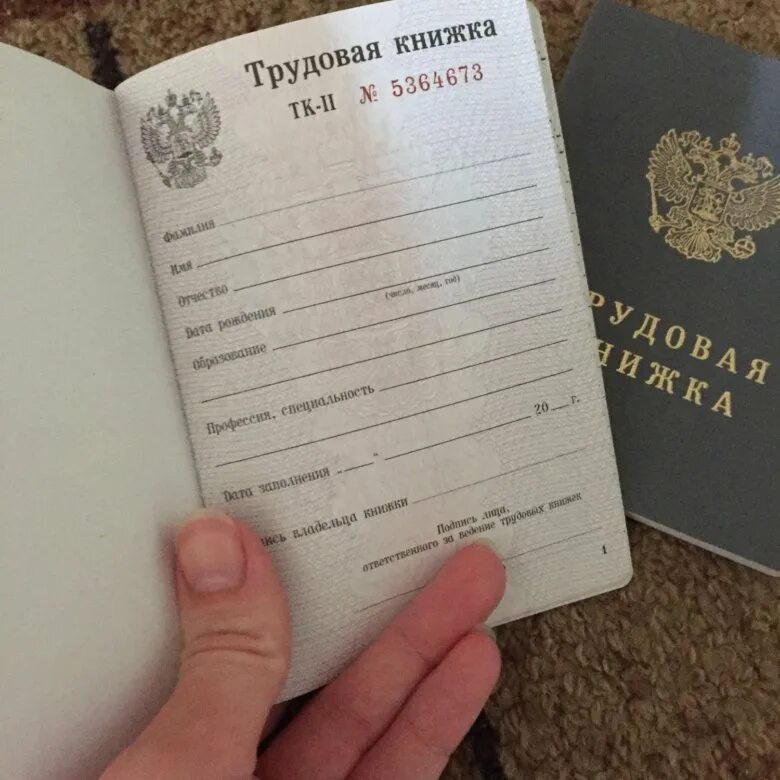 Трудовая книжка
ТК-II № 5364673
Фамилия
Имя
Отчество
Дата рождения
(число, месяц, год)
Образование
Профессия, специальность
Дата заполнения „ “ 20 г.
ись владельца книжки
Подпись лица,
ответственного за ведение трудовых книжек
1
РУДОВАЯ
НИЖКА